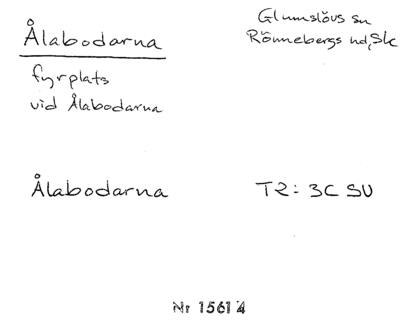 Ålabodarna
Glumslövs sn
Rönnebergs hd, Sk
fyrplats
vid Ålabodarna
Ålabodarna
T2: 3C SV
Nr 15614